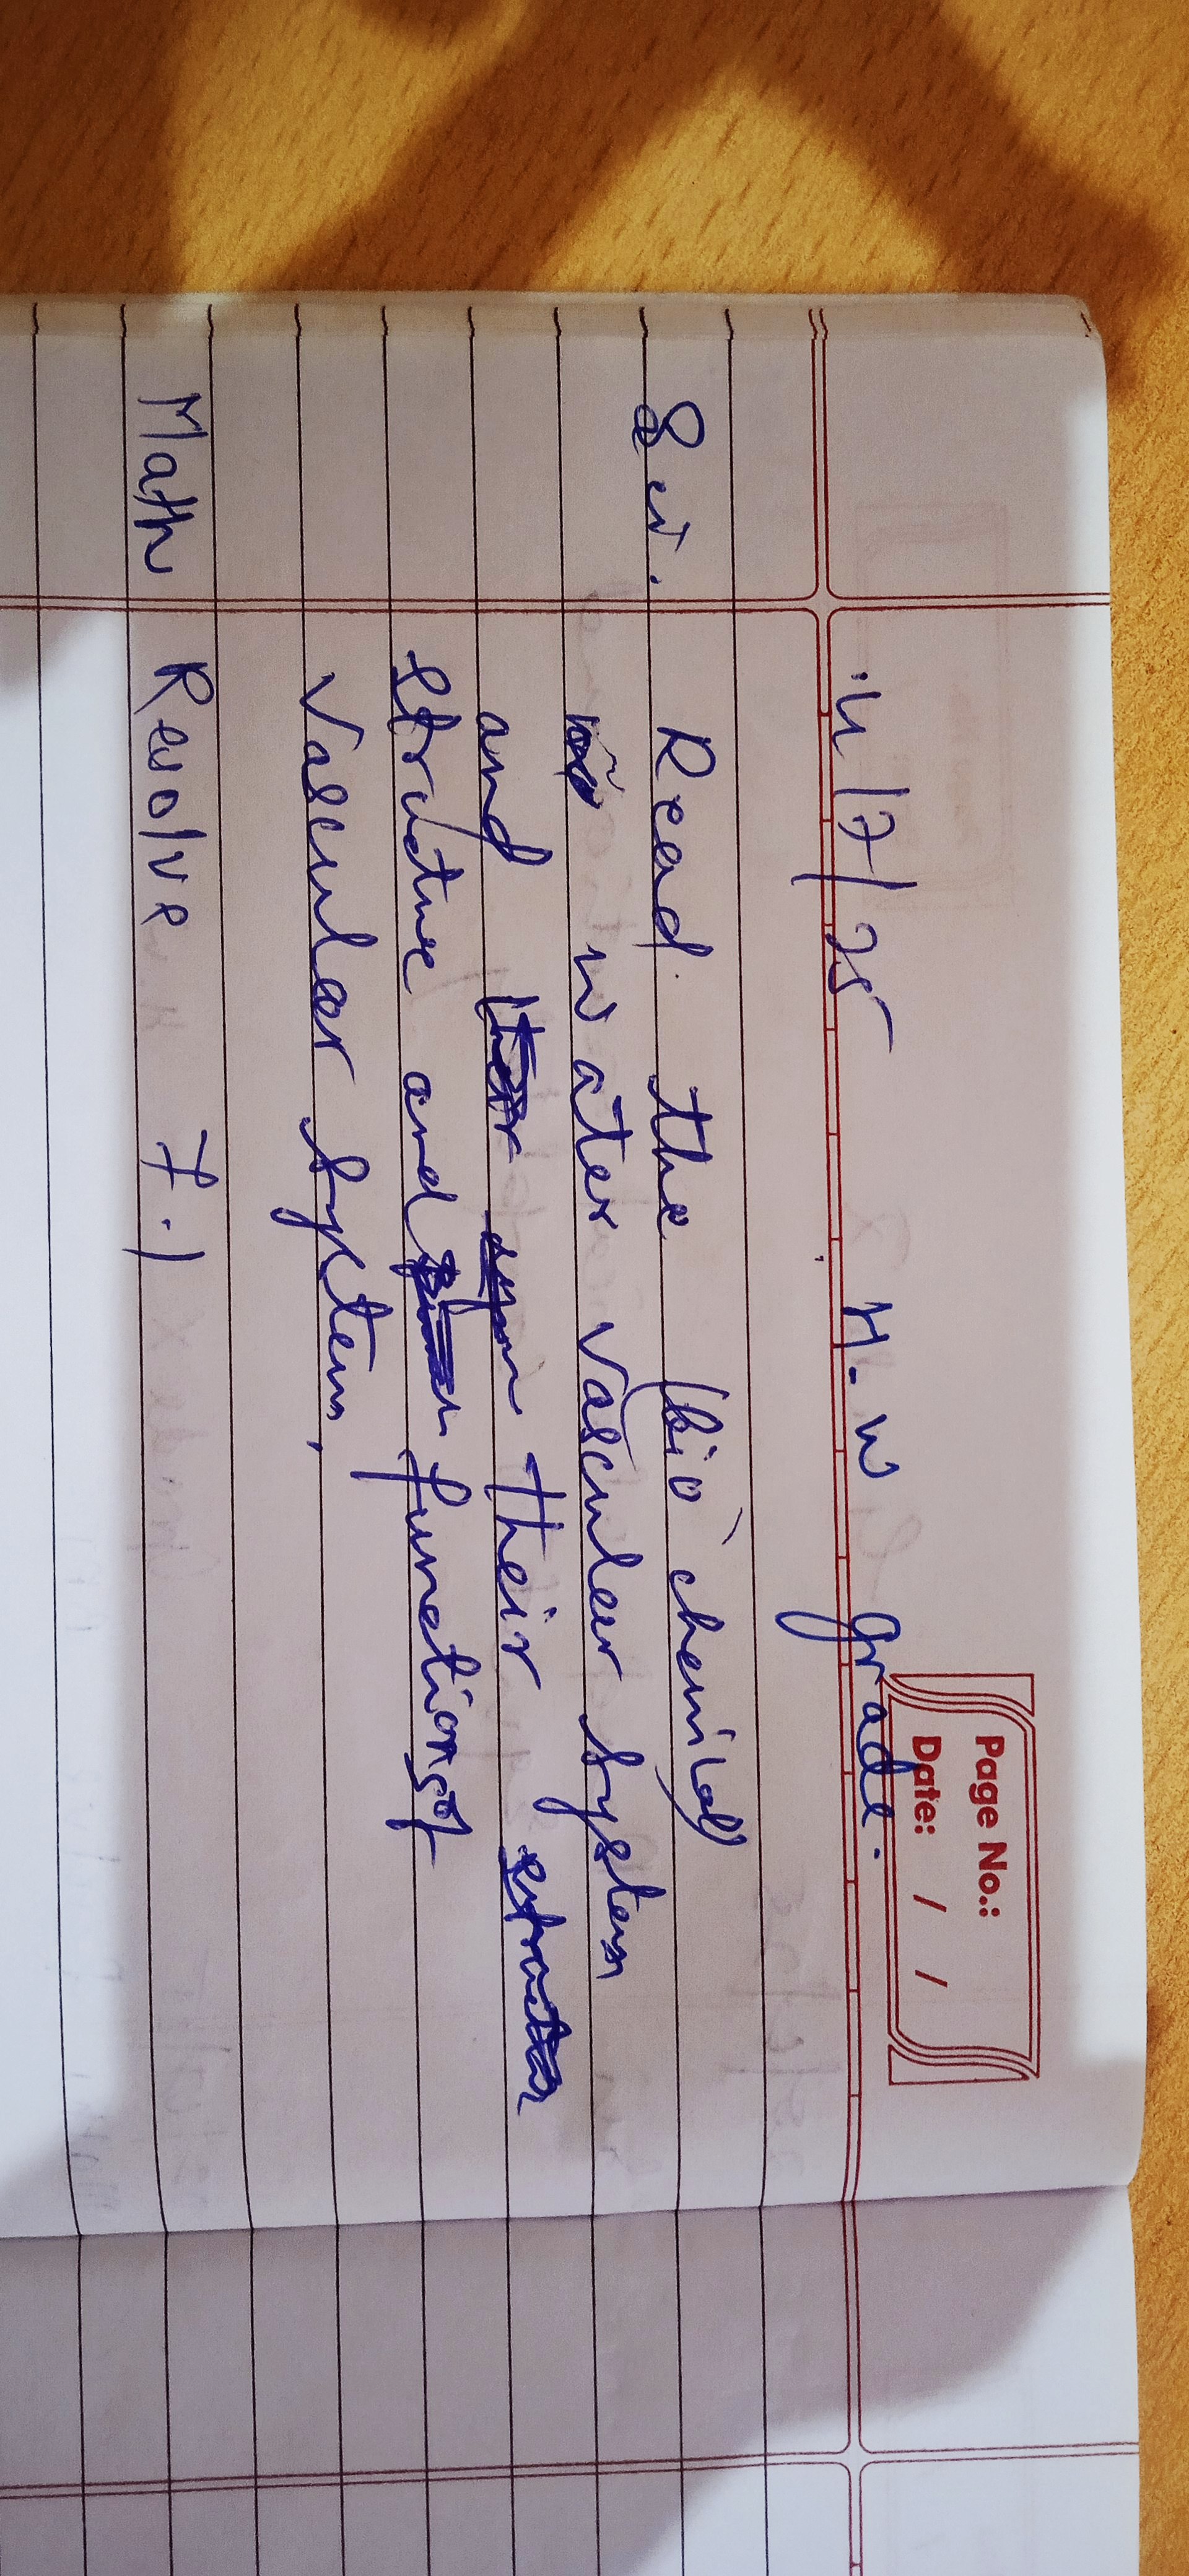 Page No.:
Date: / /
11/7/25 H.W grade.
Sci. Read the (bio chemical)
water vascular system
and their
structure and functions of
vascular system,
Math Resolve 7.1